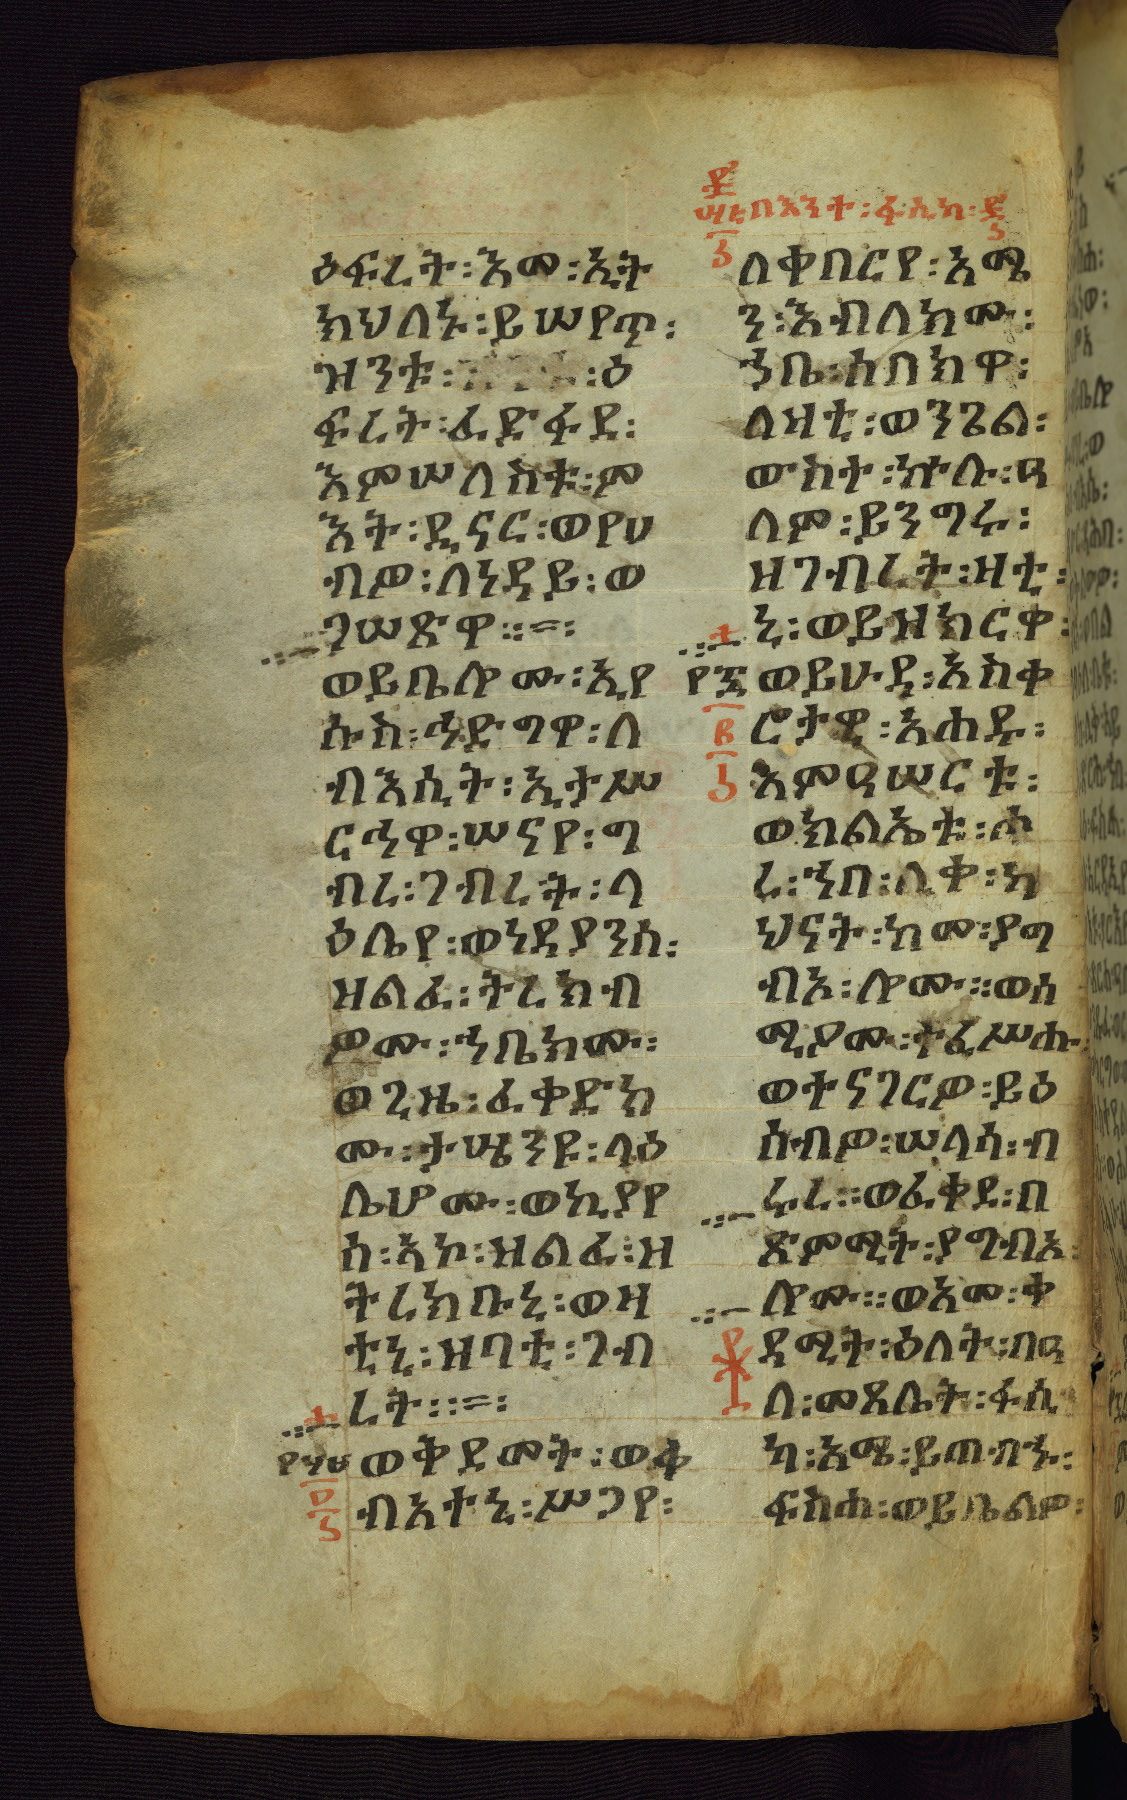 በእንተ፡ፋሲካ፡
ዕፍረት፡እመ፡ኢት
ክህለኑ፡ይሠየጥ፡
ዝንቱ፡ ፡ዕ
ፍረት፡ፈድፋደ፡
እምሠለስቱ፡ም
እት፡ዲናር፡ወየሀ
ብዎ፡ለነዳይ፡ወ
ገሠጽዋ።
ወይቤሎሙ፡ኢየ
ሱስ፡ኅድግዋ፡ለ
ብእሲት፡ኢታሥ
ርሕዋ፡ሠናየ፡ግ
ብረ፡ገብረት፡ላ
ዕሌየ፡ወነዳያንሰ፡
ዘልፈ፡ትረክብ
ዎሙ፡ኀቤክሙ፡
ወጊዜ፡ፈቀድክ
ሙ፡ታሤንዩ፡ላዕ
ሌሆሙ፡ወኪያየ
ሰ፡አኮ፡ዝልፈ፡ዘ
ትረክቡኒ፡ወዛ
ቲኒ፡ዝባቲ፡ገብ
ረት።
ወቅደመት፡ወቀ
ብአተኒ፡ሥጋየ፡
ለቀበርየ፡እሜ
ን፡እብለክሙ፡
ኀቤ፡ሰበክዋ፡
ለዛቲ፡ወንጌል፡
ውስተ፡ኵሉ፡ዓ
ለም፡ይንግሩ፡
ዘገብረት፡ዛቲ፡
ኒ፡ወይዝክርዋ፡
ወይሁዳ፡አስቀ
ሮታዊ፡አሐዱ፡
እምዓሠርቱ፡
ወክልኤቱ፡ሖ
ረ፡ኀበ፡ሊቀ፡ካ
ህናት፡ከመ፡ያግ
ብእ፡ሎሙ።ወሰ
ሚዖሙ፡ተፈሥሑ
ወተናገርዎ፡ይዕ
ስብዎ፡ሠላሳ፡ብ
ሩረ።ወፈቀደ፡በ
ጽምሚት፡ያግብእ፡
ሎሙ።ወእመ፡ቀ
ዳሚት፡ዕለት፡በዓ
ለ፡መጸሌት፡ፋሲ
ካ፡እሜ፡ይጠብኁ፡
ፍስሐ፡ወይቤልዎ፡